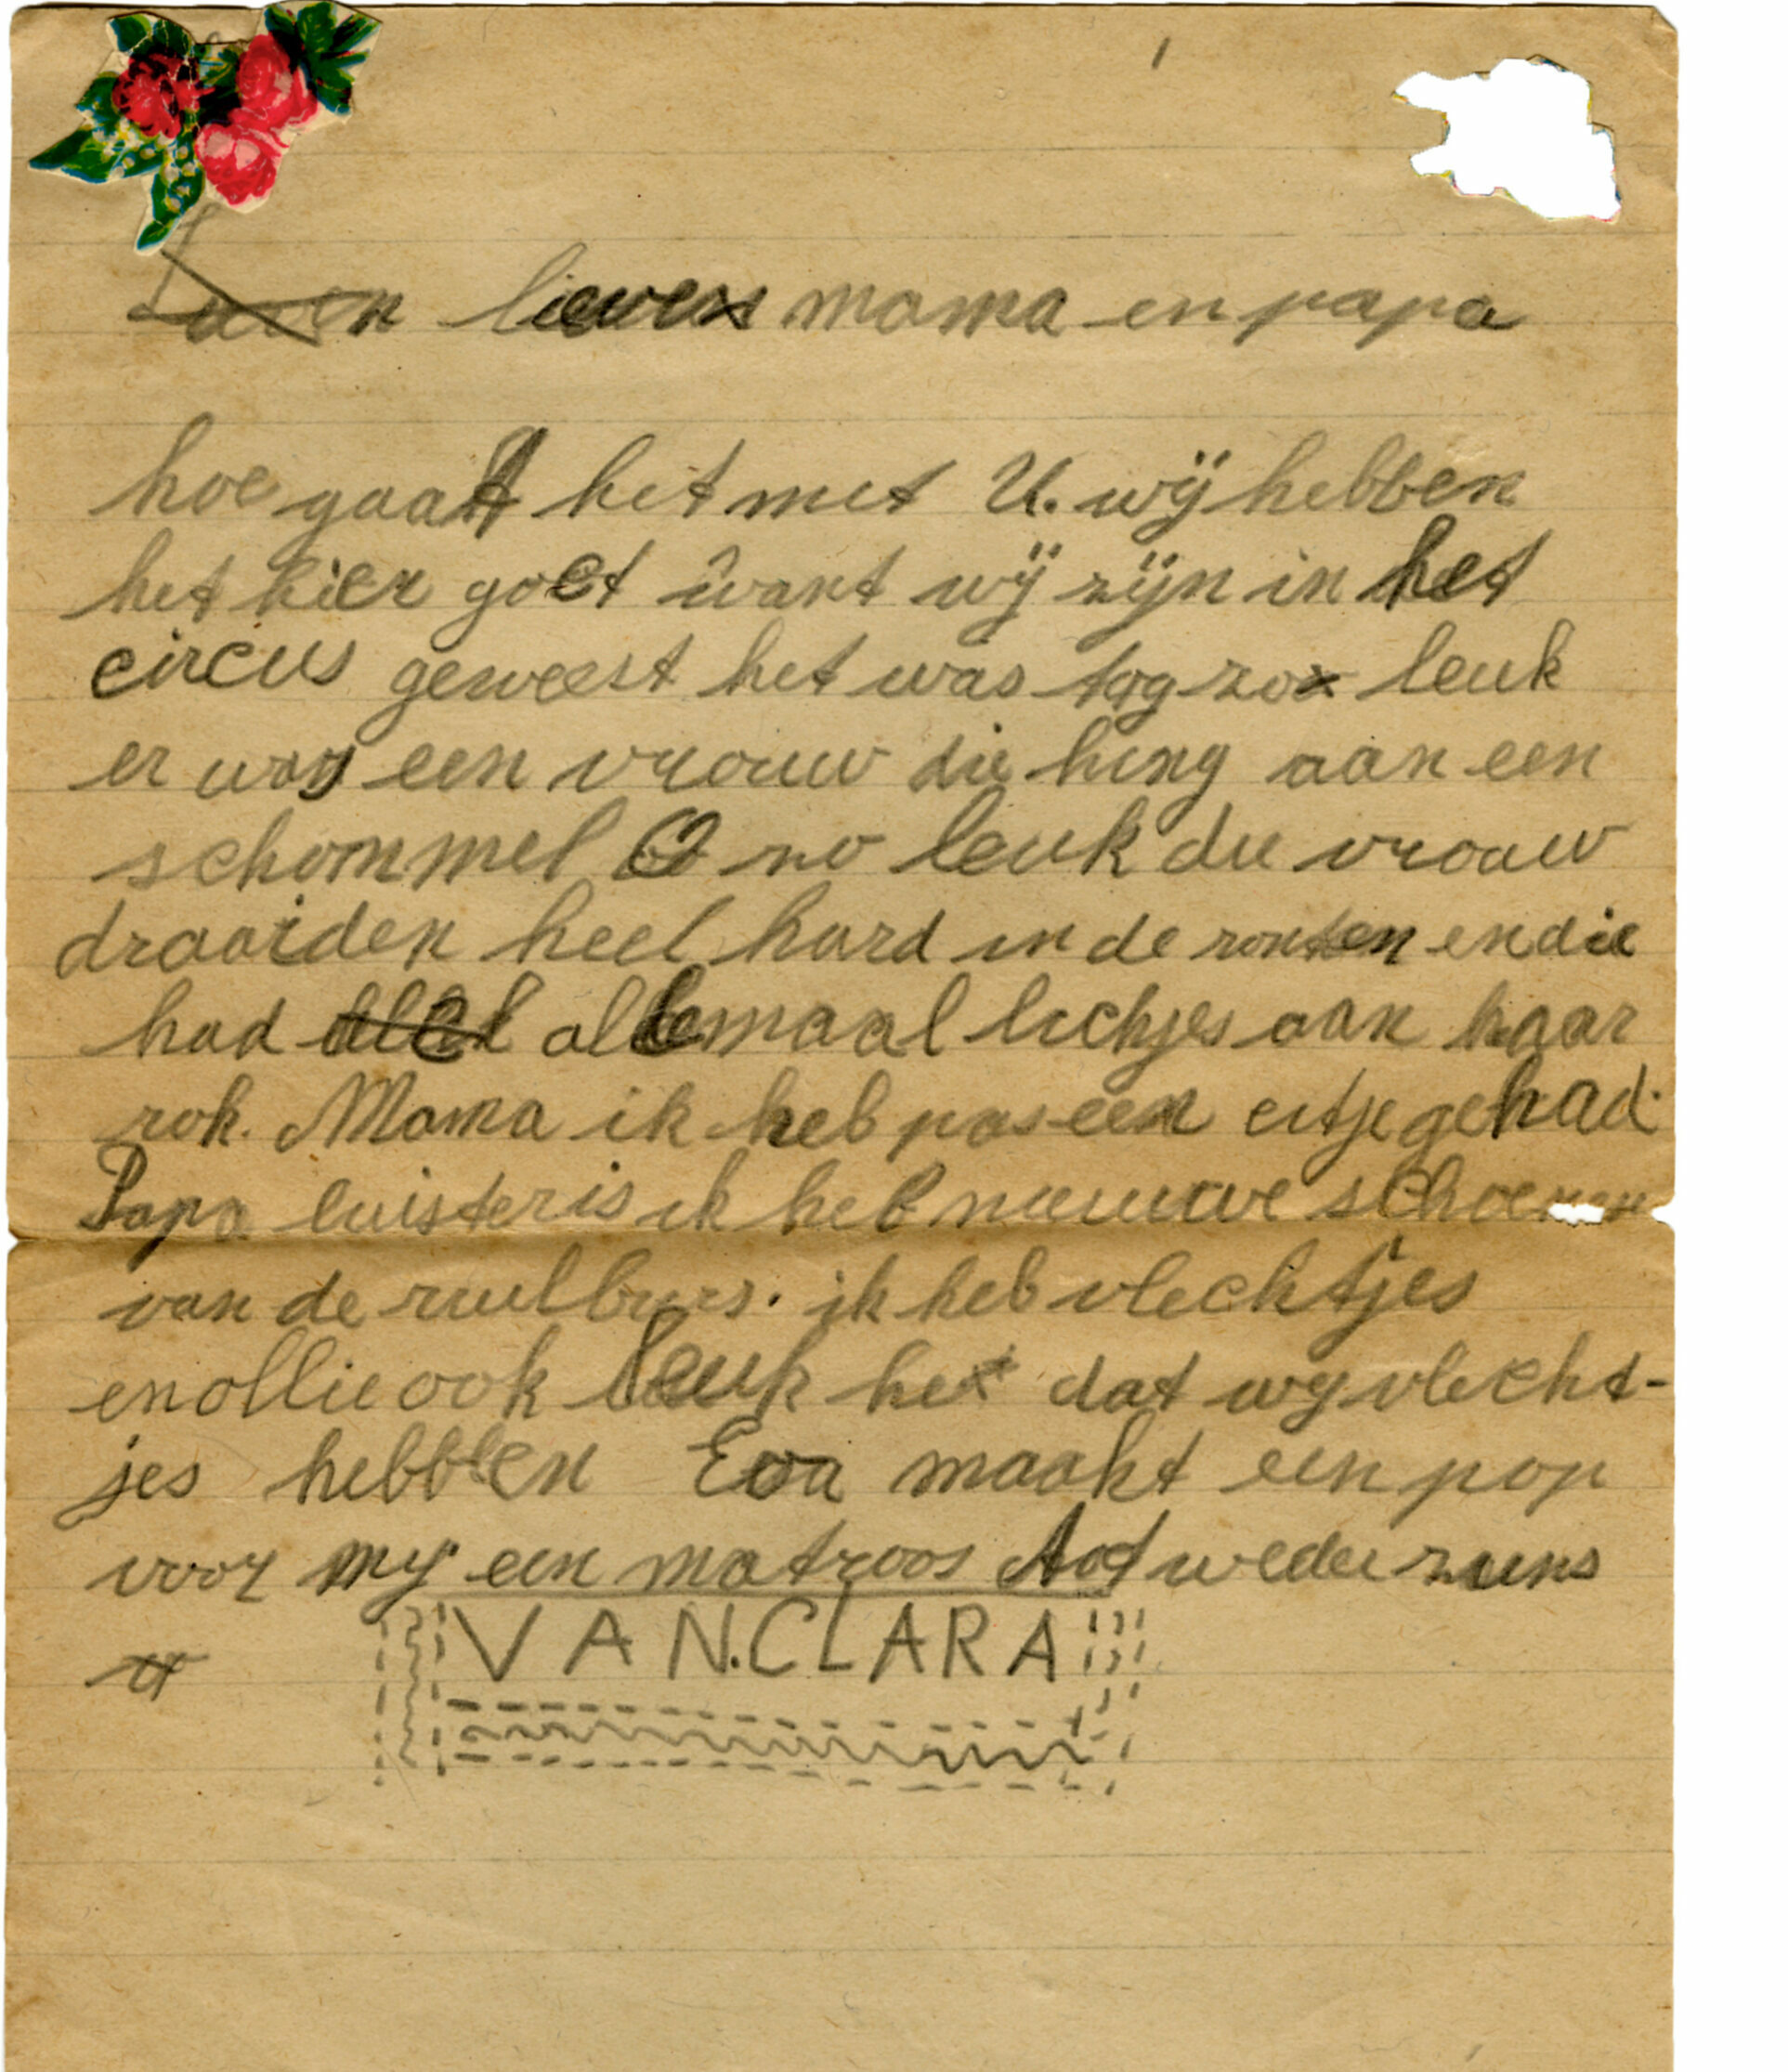 lieve mama en papa
hoe gaat het met U. wij hebben
het hier goet want wij zijn in het
circus geweest het was tog zo leuk
er was een vrouw die hing aan een
schommel O zo leuk die vrouw
draaiden heel hard in de ronten en die
had allemaal lichjes aan haar
rok. Mama ik heb pas een eitje gehad.
Papa luister is ik heb nieuwe schoenen
van de ruilburs. ik heb vlechtjes
en ollie ook leuk he dat wij vlecht-
jes hebben Eva maakt een pop
voor mij een matroos tot weder ziens
VAN.CLARA